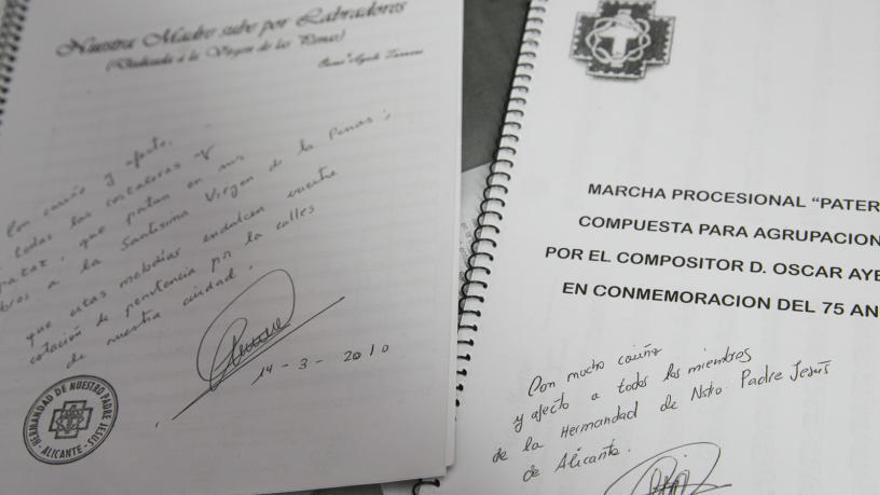 Nuestra Madre sube por Labradores
(Dedicada a la Virgen de las Penas)
Con cariño y afecto,
a todas las costaleras y
que portan en sus
a la Santísima Virgen de la Penas;
que estas melodías endulcen vuestra
estación de penitencia por la calles
de nuestra ciudad.
14-3-2010
HERMANDAD DE NUESTRO PADRE JESUS
- ALICANTE -
MARCHA PROCESIONAL “PATER
COMPUESTA PARA AGRUPACION
POR EL COMPOSITOR D. OSCAR AYE
EN CONMEMORACION DEL 75 AN
Con mucho cariño
y afecto a todos los miembros
de la Hermandad de Nstro Padre Jesús
de Alicante.